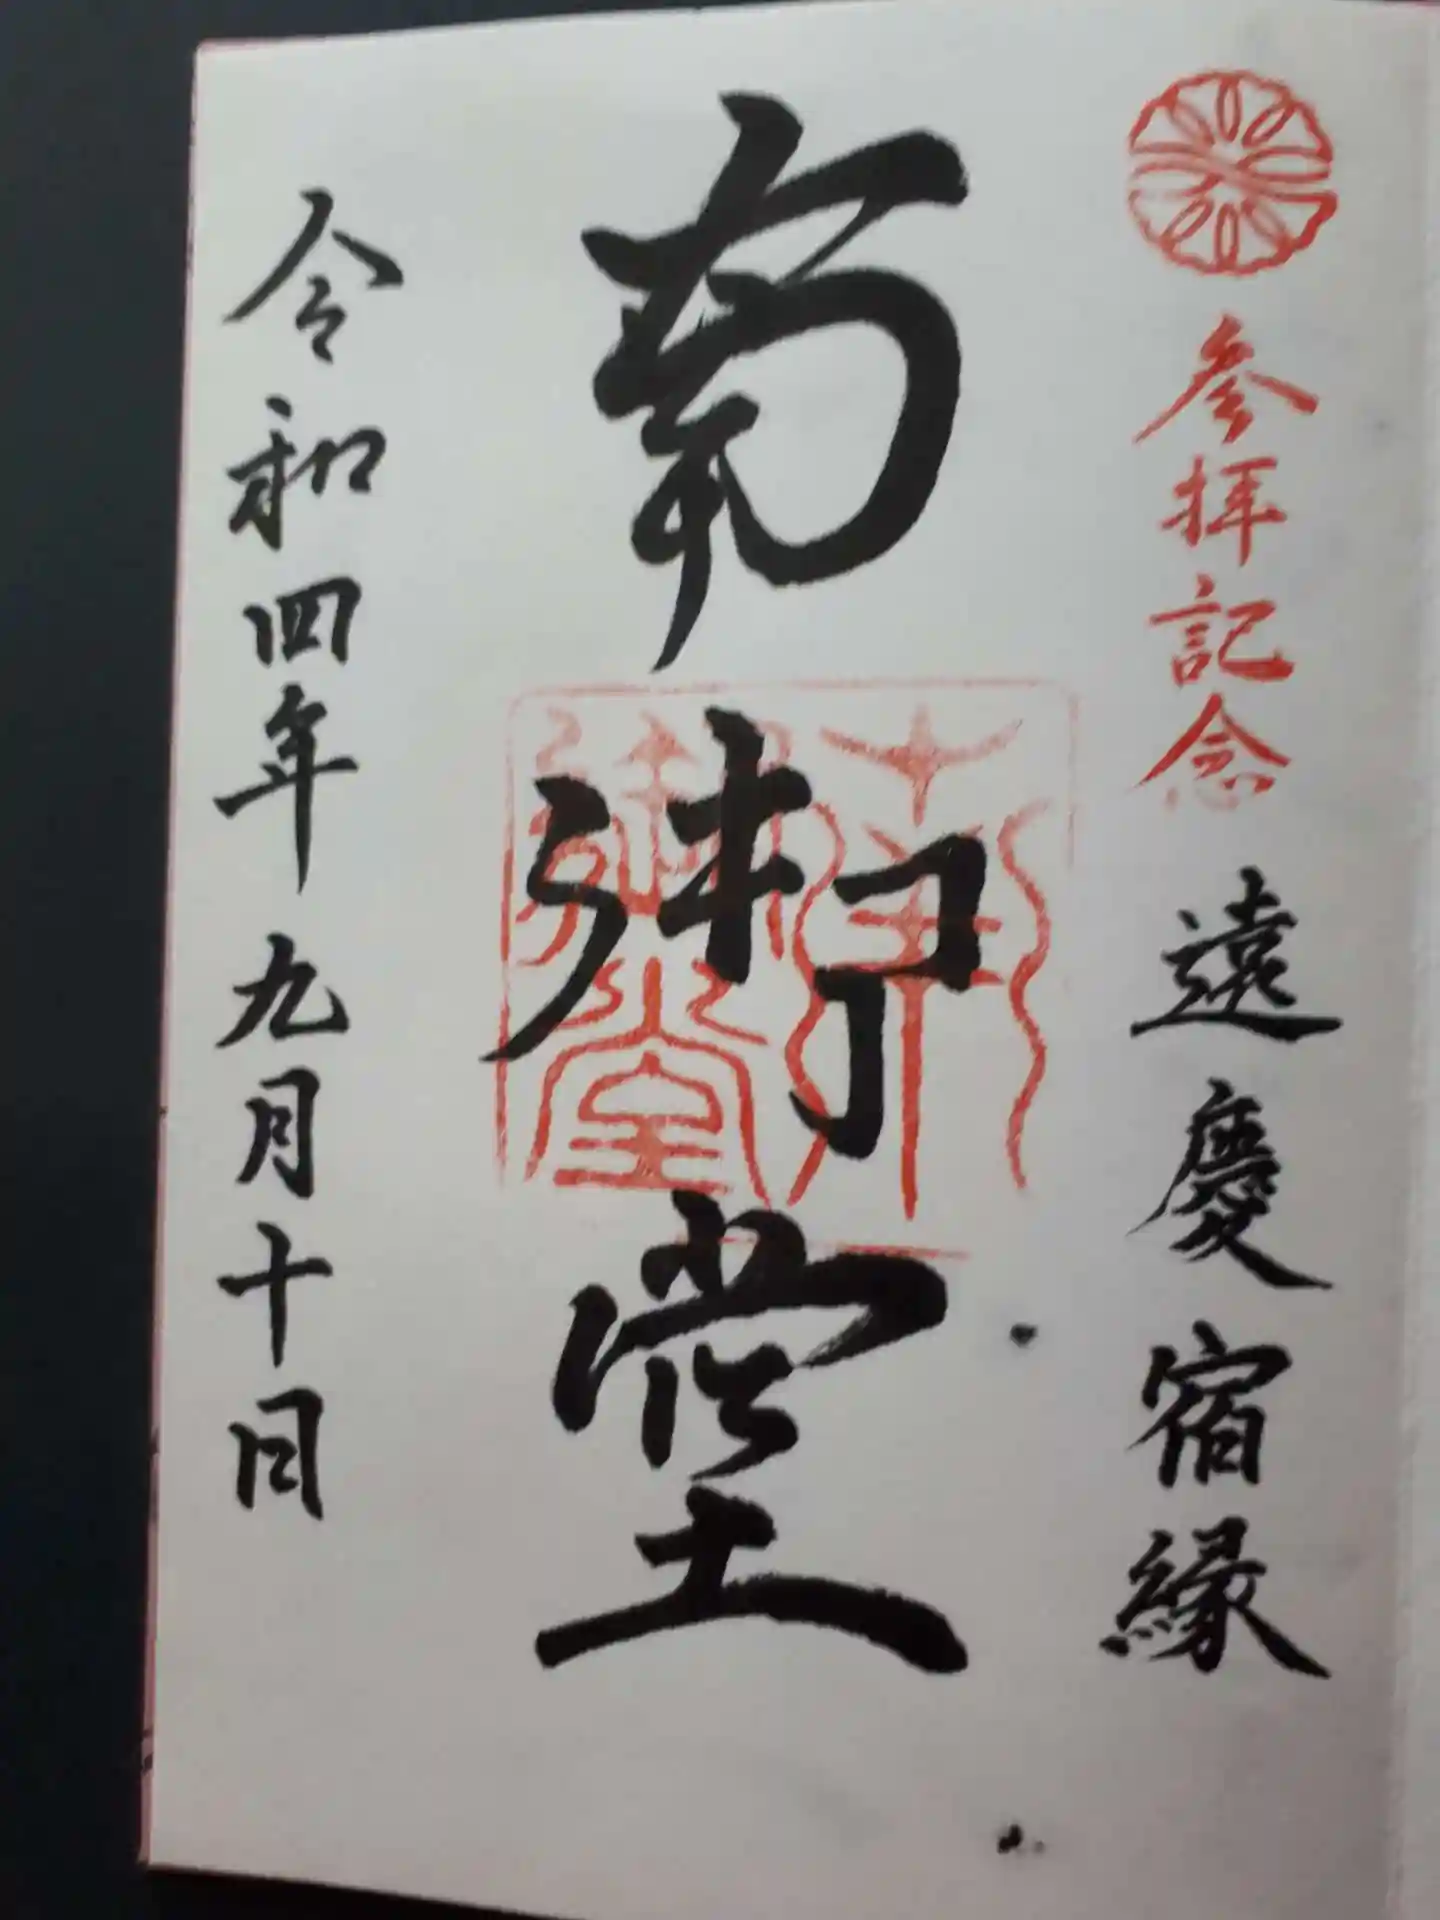 参拝記念
遠慶宿縁
南御堂
南御堂
令和四年九月十日